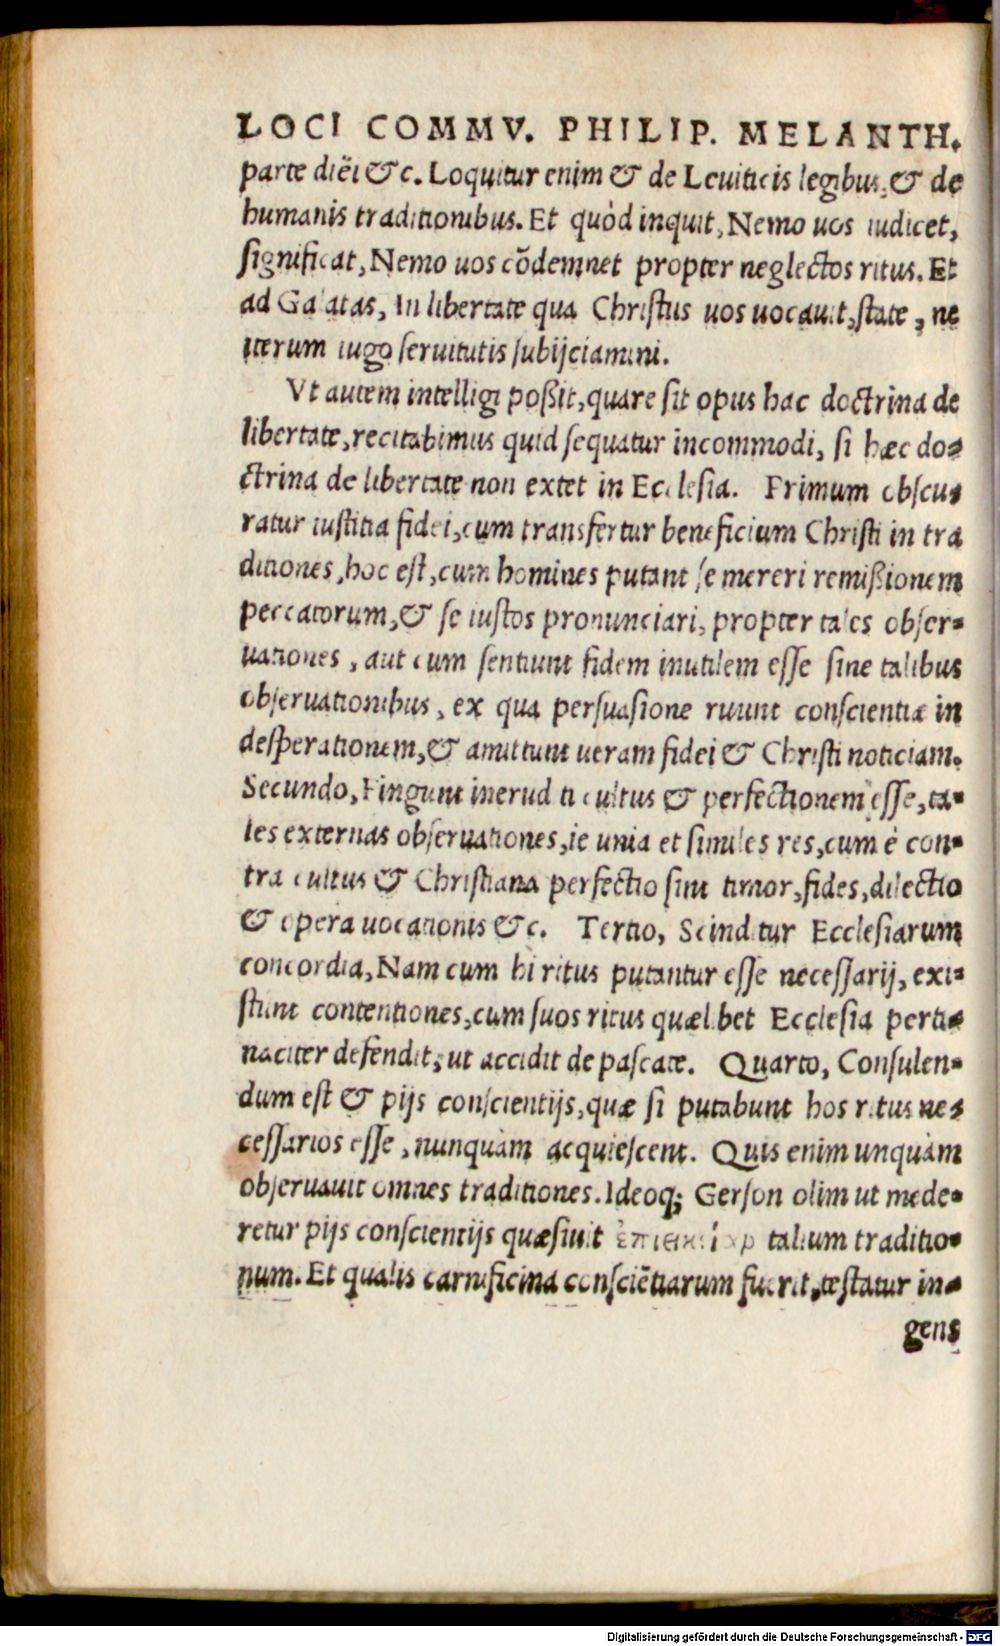 LOCI COMMV. PHILIP. MELANTH.
parte diëi &c. Loquitur enim & de Leuiticis legibus, & de
humanis traditionibus. Et quòd inquit, Nemo uos iudicet,
significat, Nemo uos cõdemnet propter neglectos ritus. Et
ad Galatas, In libertate qua Christus uos uocauit, state, ne
iterum iugo seruitutis subijciamini.
Vt autem intelligi poßit, quare sit opus hac doctrina de
libertate, recitabimus quid sequatur incommodi, si hæc do-
ctrina de libertate non extet in Ecclesia. Primum obscu-
ratur iustitia fidei, cum transfertur beneficium Christi in tra
ditiones, hoc est, cum homines putant se mereri remißionem
peccatorum, & se iustos pronunciari, propter tales obser-
uationes, aut cum sentiunt fidem inutilem esse sine talibus
obseruationibus, ex qua persuasione ruunt conscientiæ in
desperationem, & amittunt ueram fidei & Christi noticiam.
Secundo, Fingunt inerud ti cultus & perfectionem esse, ta-
les externas obseruationes, ie unia et similes res, cum è con-
tra cultus & Christiana perfectio sint timor, fides, dilectio
& opera uocationis &c. Tertio, Scinditur Ecclesiarum
concordia, Nam cum hi ritus putantur esse necessarij, exi-
stunt contentiones, cum suos ritus quælibet Ecclesia perti-
naciter defendit, ut accidit de pascate. Quarto, Consulen-
dum est & pijs conscientijs, quæ si putabunt hos ritus ne-
cessarios esse, nunquàm acquiescent. Quis enim unquàm
obseruauit omnes traditiones. Ideoq; Gerson olim ut mede-
retur pijs conscientijs quæsiuit talium traditio-
num. Et qualis carnificina consciẽtiarum fuerit, testatur in-
gens
Digitalisierung gefördert durch die Deutsche Forschungsgemeinschaft - DFG